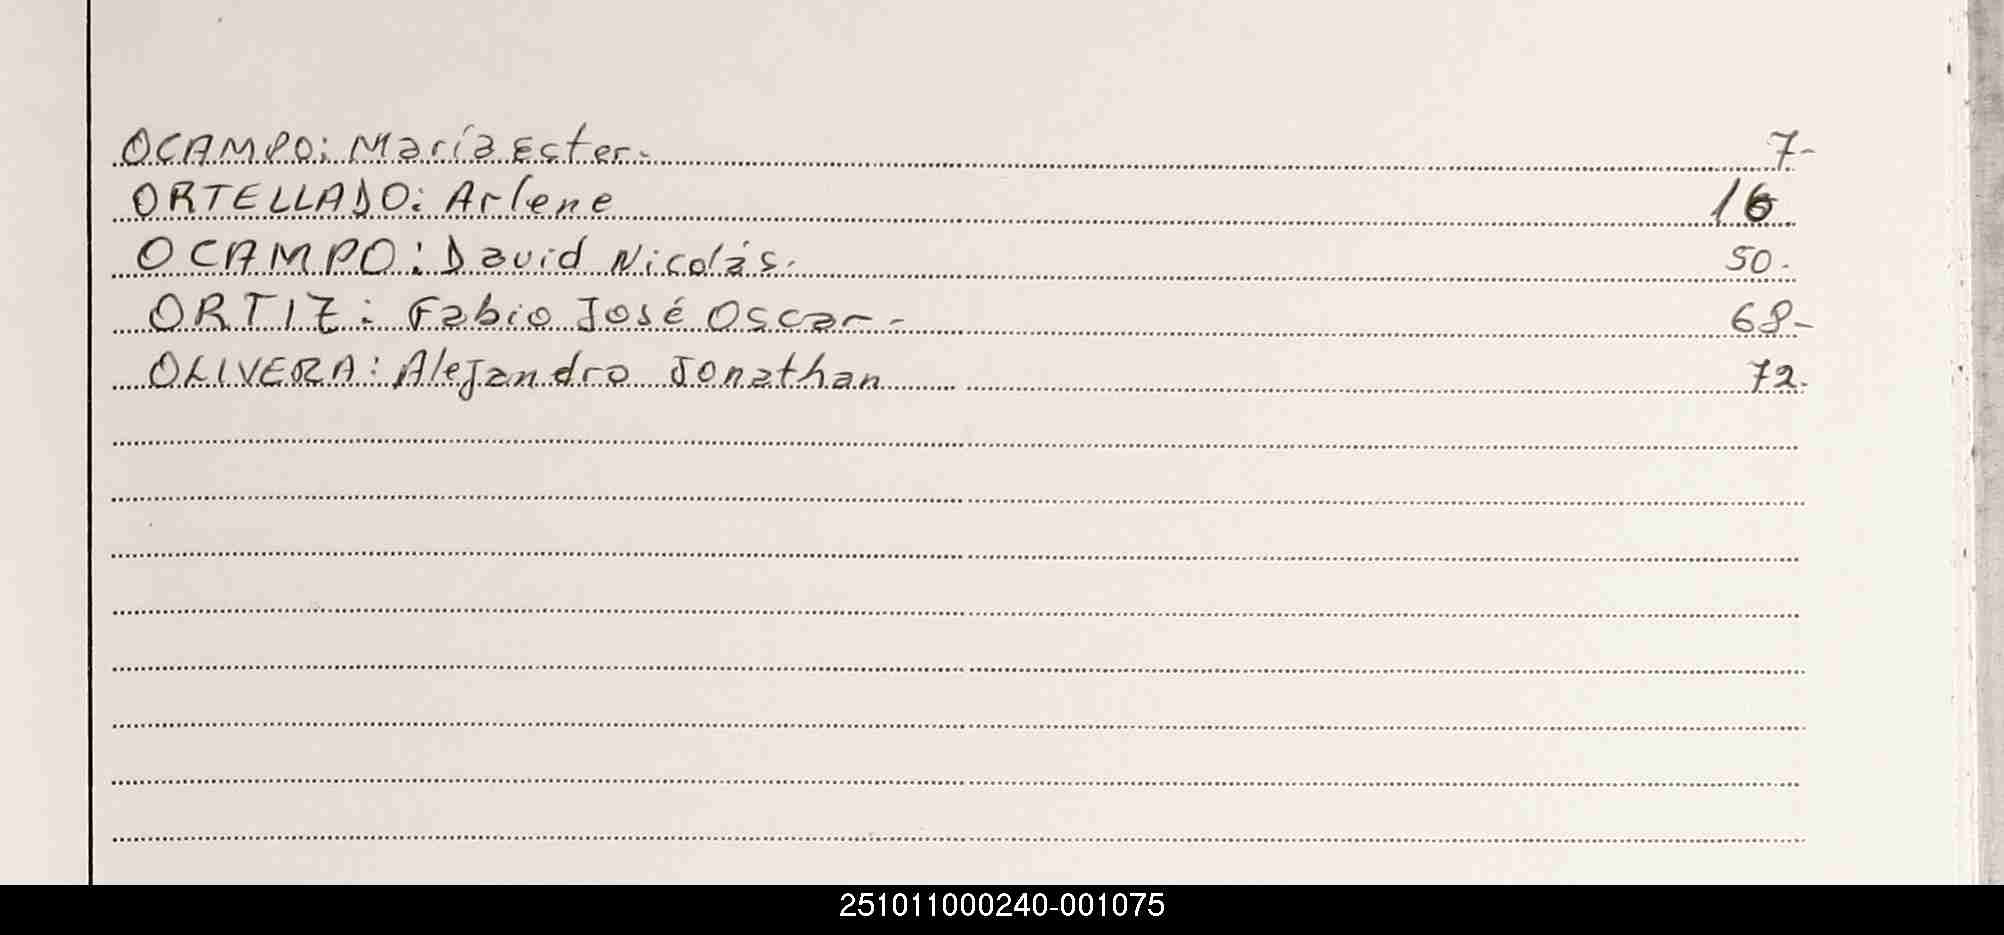 OCAMPO: María Ester.- 7-
ORTELLADO: Arlene 16
OCAMPO: David Nicolás.- 50.-
ORTIZ: Fabio José Oscar.- 68-
OLIVERA: Alejandro Jonathan 72.-
251011000240-001075